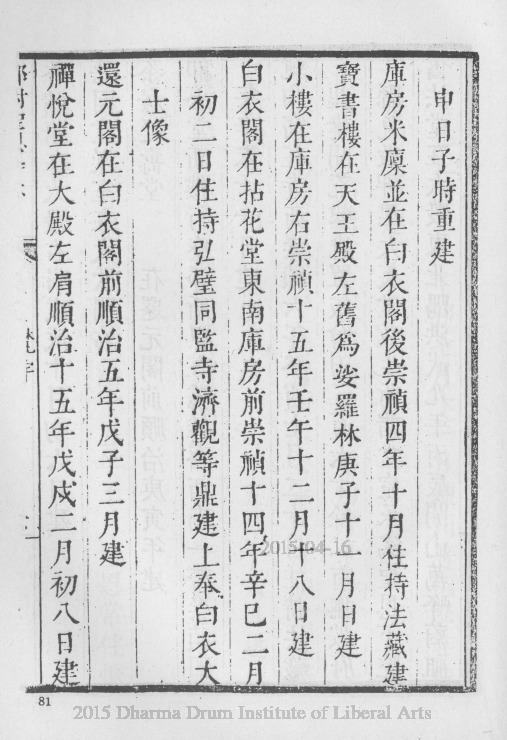 申日子時重建
庫房米廩並在白衣閣後崇禎四年十月住持法藏建
寶書樓在天王殿左舊為娑羅林庚子十一月日建
小樓在庫房右崇禎十五年壬午十二月十八日建
白衣閣在拈花堂東南庫房前崇禎十四年辛巳二月
初二日住持弘璧同監寺濟觀等鼎建上奉白衣大
士像
還元閣在白衣閣前順治五年戊子三月建
禪悅堂在大殿左肩順治十五年戊戌二月初八日建
2015-04-16
81
2015 Dharma Drum Institute of Liberal Arts